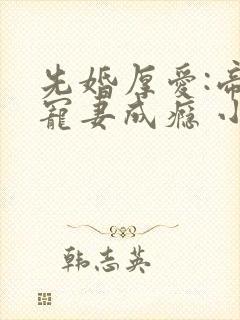 先婚厚爱:帝
宠妻成瘾 小
韩志英